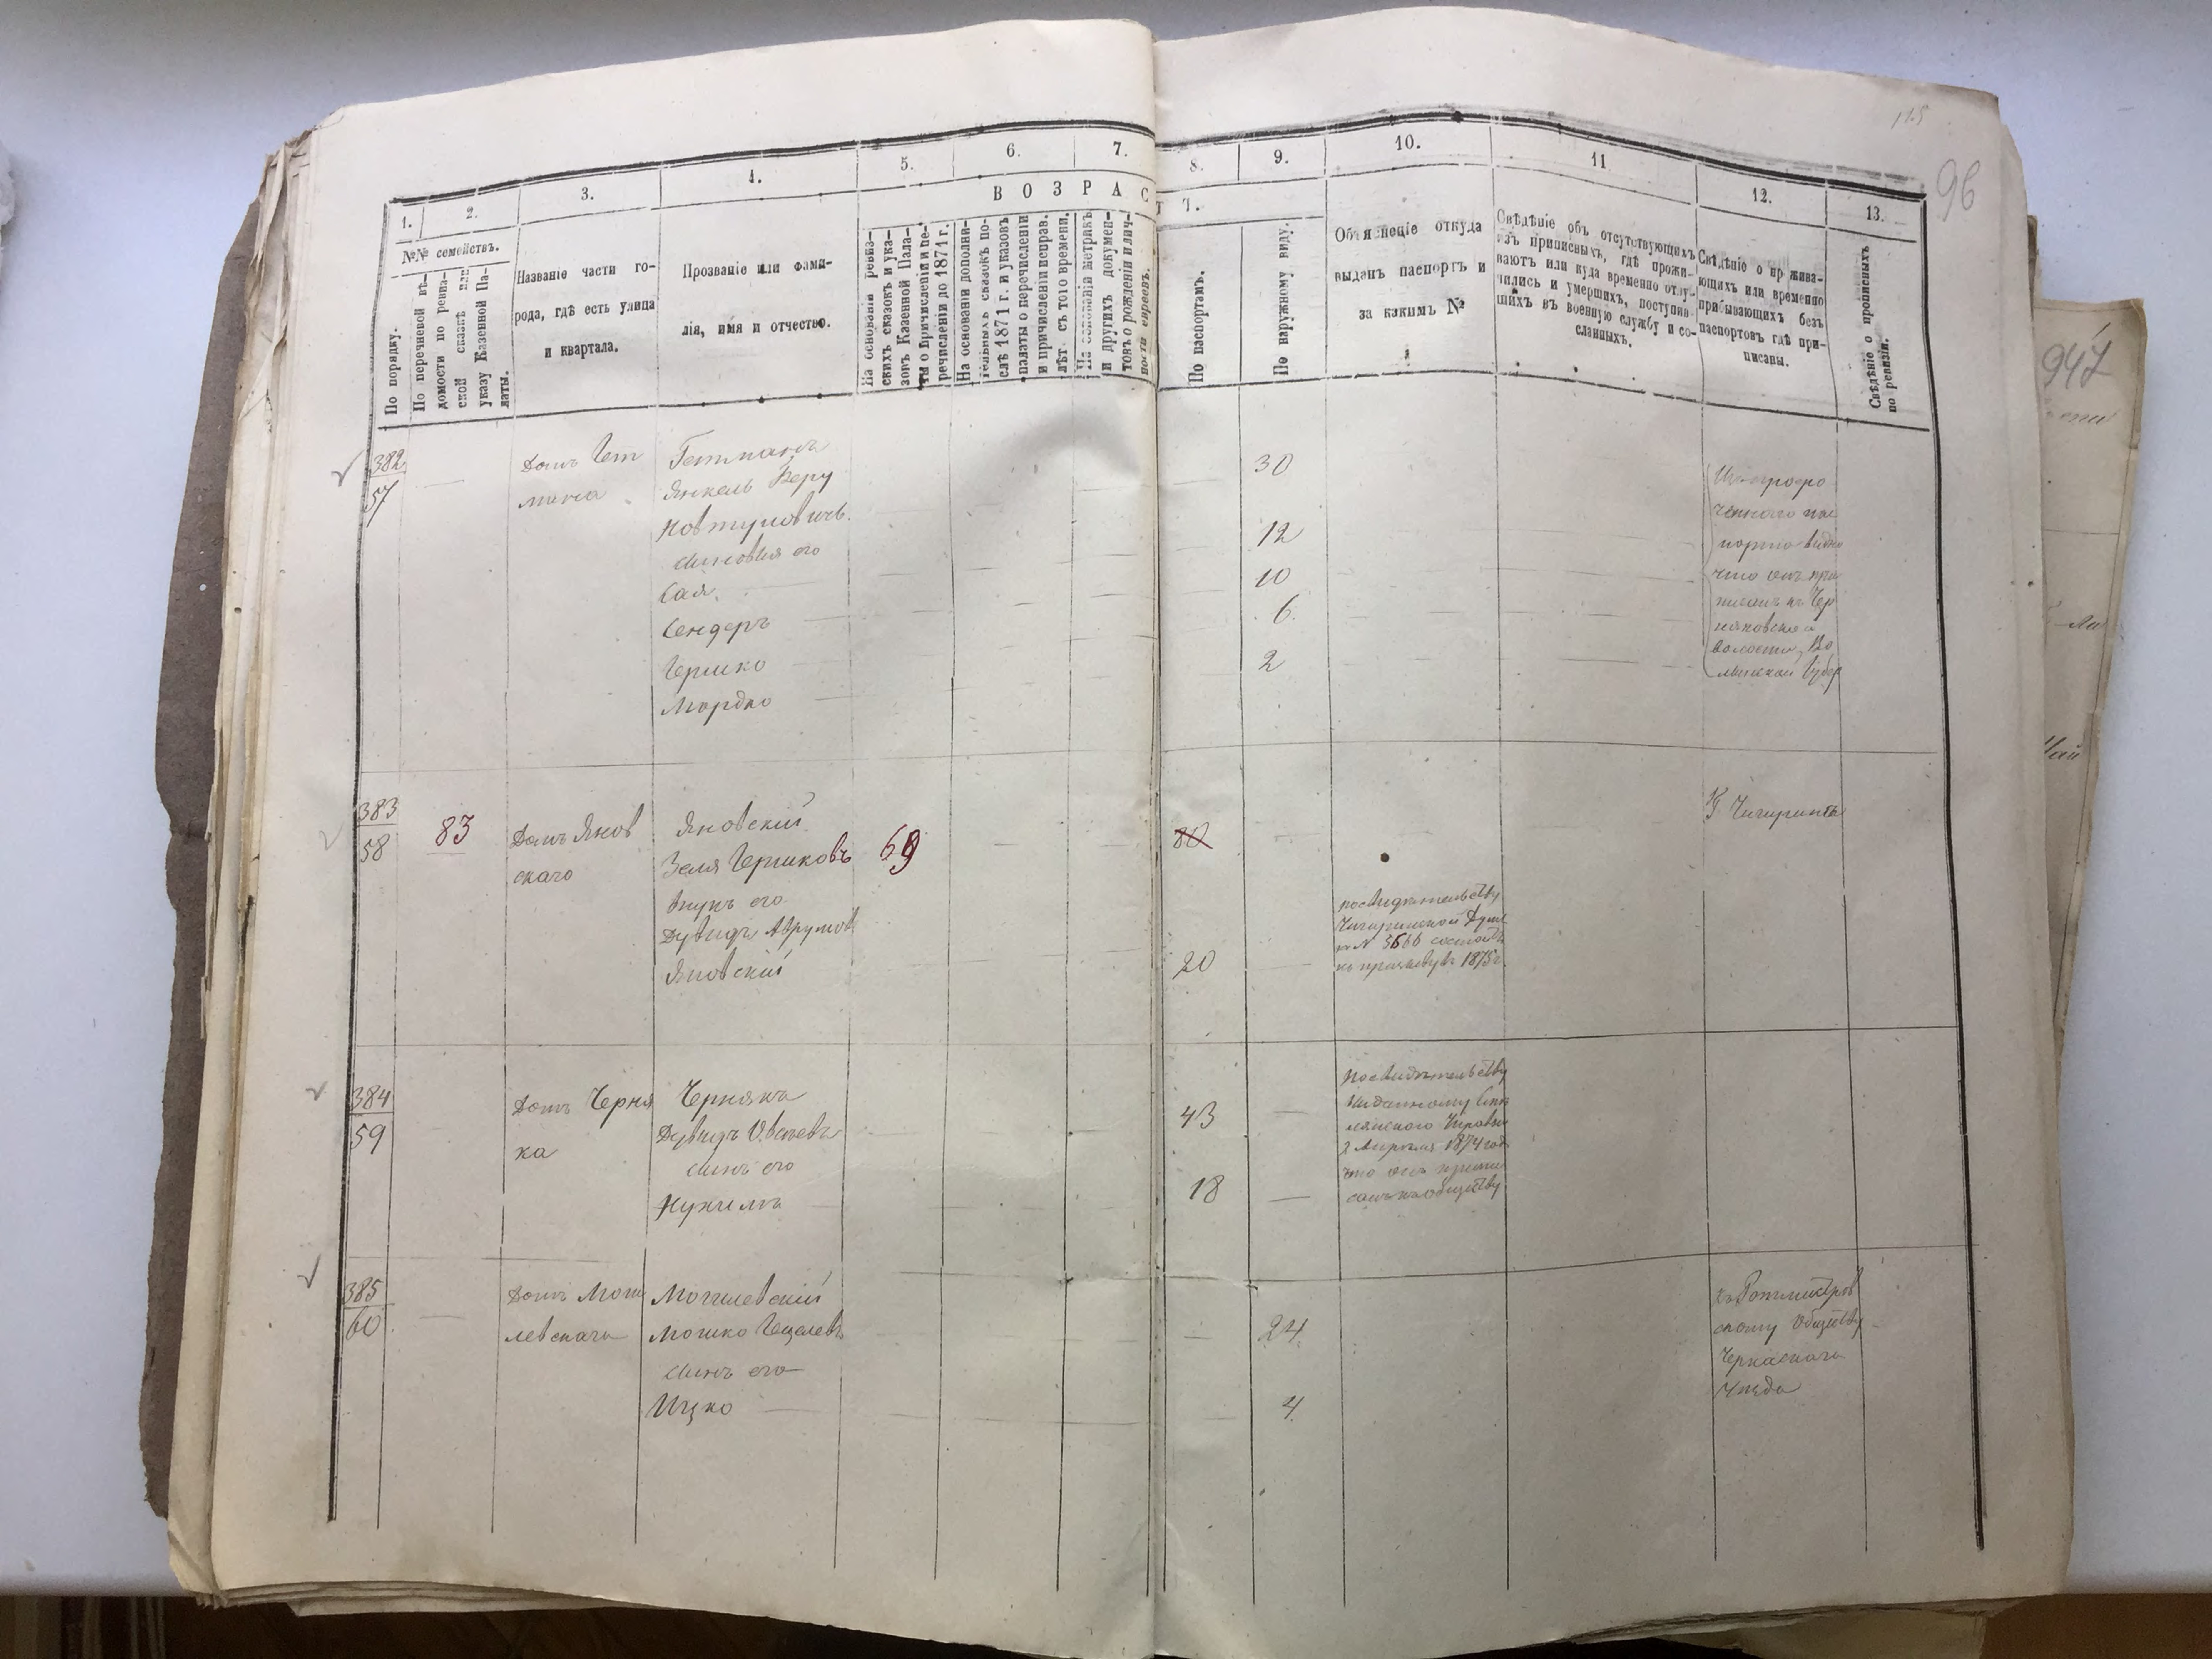 115
96
1.
2.
3.
4.
5.
6.
7.
8.
9.
10.
11
12.
13.
ВОЗРАС
Т Ъ.
№№ семействъ.
По порядку.
По перечневой вѣ-
домости по ревиз-
ской сказкѣ или
указу Казенной Па-
латы.
Названіе части го-
рода, гдѣ есть улица
и квартала.
Прозваніе или фами-
лія, имя и отчество.
На основаніи ревиз-
скихъ сказокъ и ука-
зовъ Казенной Пала-
ты о причисленіи и пе-
речисленіи до 1871 г.
На основаніи дополни-
тельныхъ сказокъ по-
слѣ 1871 г. и указовъ
палаты о перечисленіи
и причисленіи исправ.
лѣт. съ того времени.
На основаніи метрикъ
и другихъ докумен-
товъ о рожденіи и лич-
ности евреевъ.
По паспортамъ.
По наружному виду.
Объясненіе откуда
выданъ паспортъ и
за какимъ №
Свѣдѣніе объ отсутствующихъ
изъ приписныхъ, гдѣ прожи-
ваютъ или куда временно отлу-
чились и умершихъ, поступив-
шихъ въ военную службу и со-
сланныхъ.
Свѣдѣніе о прожива-
ющихъ или временно
прибывающихъ безъ
паспортовъ гдѣ при-
писаны.
Свѣдѣніе о прописныхъ
по ревизіи.
382
57
Домъ Гет
мана
Гетманъ
Янкель Беру
Новтуловичъ
сыновья его
Сая
Сендеръ
Гершко
Мордко
30
12
10
6
2
Изъ просро
ченного пас
порта видно
что онъ при
писанъ къ Чер
няховской
волости, Во
лынской Губер
383
58
83
Домъ Янов
скаго
Яновскій
Зеля Гершковъ
внукъ его
Дувидъ Аврумов
Яновскій
69
80
20
по свидѣтельству
Чигиринской Думы
за № 3666 состоитъ
къ призыву въ 1875 г.
Къ Чигирина
384
59
Домъ Черня
ка
Чернякъ
Дувидъ Овсѣевъ
сынъ его
Нухимъ
43
18
По свидѣтельству
выданному
2 Апрѣля 1874 год
что онъ припи
санъ къ обществу
385
60
Домъ Моги
левскаго
Могилевскій
Мошко Гецелевъ
сынъ его
Ицко
24
4
Къ Ротмистров
скому Обществу
Черкаскаго
Уѣзда
947